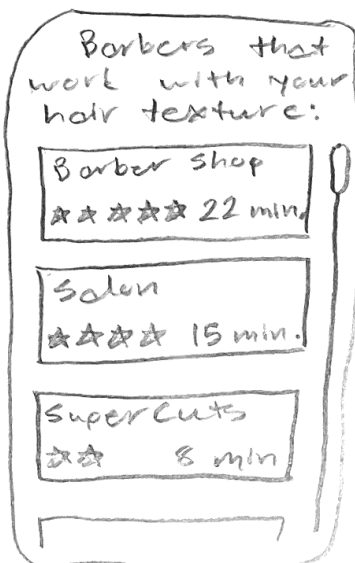 Barbers that
work with your
hair texture:
Barber Shop
★★★★★ 22 min.
Salon
★★★★ 15 min.
SuperCuts
★★ 8 min